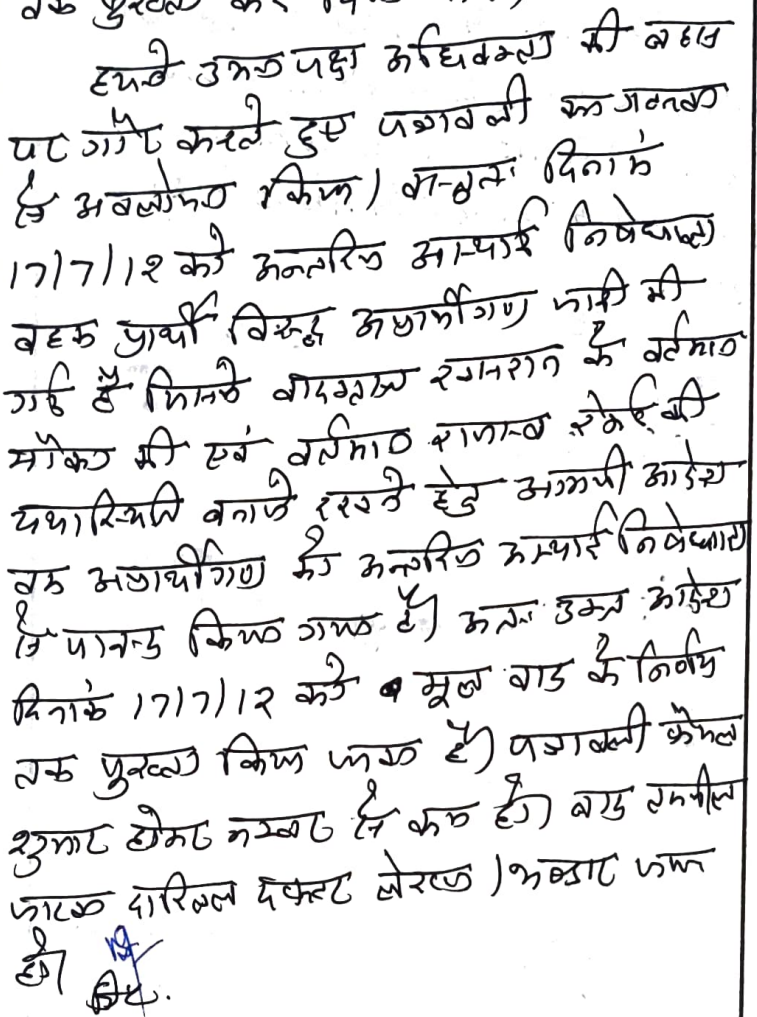 तक पुख्ता कर दिया
हमने उभय पक्ष अधिवक्ता की बहस
पर गौर करते हुए पत्रावली का गहनता
से अवलोकन किया। वस्तुतः दिनांक
17/7/12 को अन्तरिम अस्थाई निषेधाज्ञा
बहक प्रार्थी विरूद्ध अप्रार्थीगण जारी की
गई है जिसमे वादग्रस्त के वर्तमान
मौका की एवं वर्तमान राजस्व रेकर्ड की
यथास्थिति बनाये रखने हेतु आगामी आदेश
तक अप्रार्थीगण को अन्तरिम अस्थाई निषेधाज्ञा
से पाबन्द किया गया है। अतः उक्त आदेश
दिनांक 17/7/12 को मूल वाद के निर्णय
तक पुख्ता किया जाता है। पत्रावली फैसल
शुमार होकर नम्बर से कम हो। बाद तकमील
जाब्ता दाखिल दफ्तर लेख्य। जाय
हो।